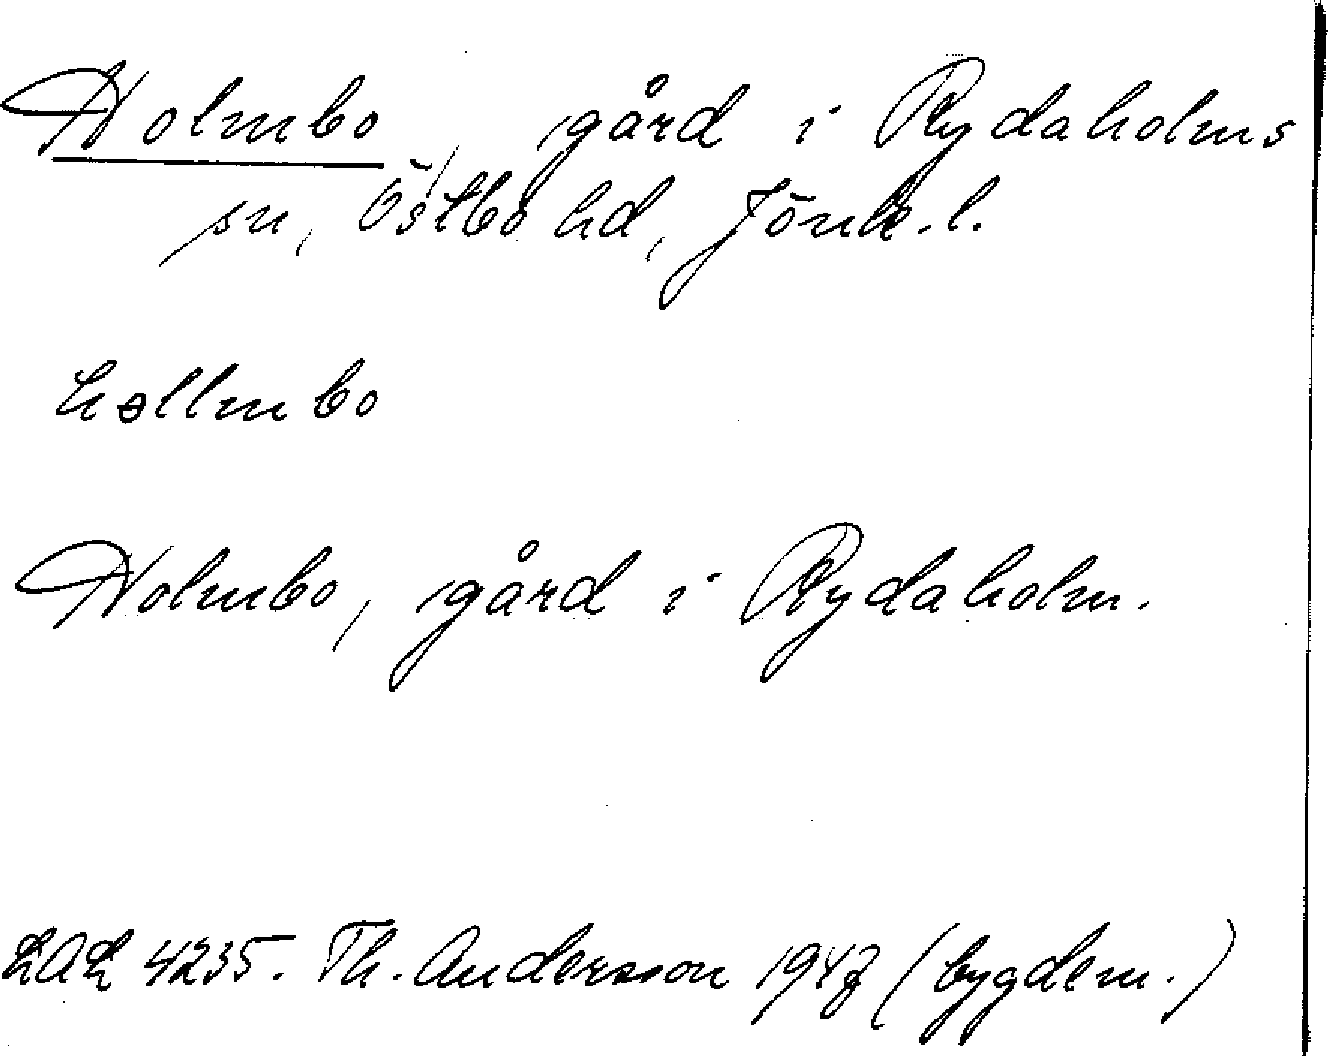 Holmbo, gård i Rydaholms
sn, Östbo hd, Jönk. l.
hɵllmbo
Holmbo, gård i Rydaholm.
LAL 4235. Th. Andersson 1947 (bygdem.)